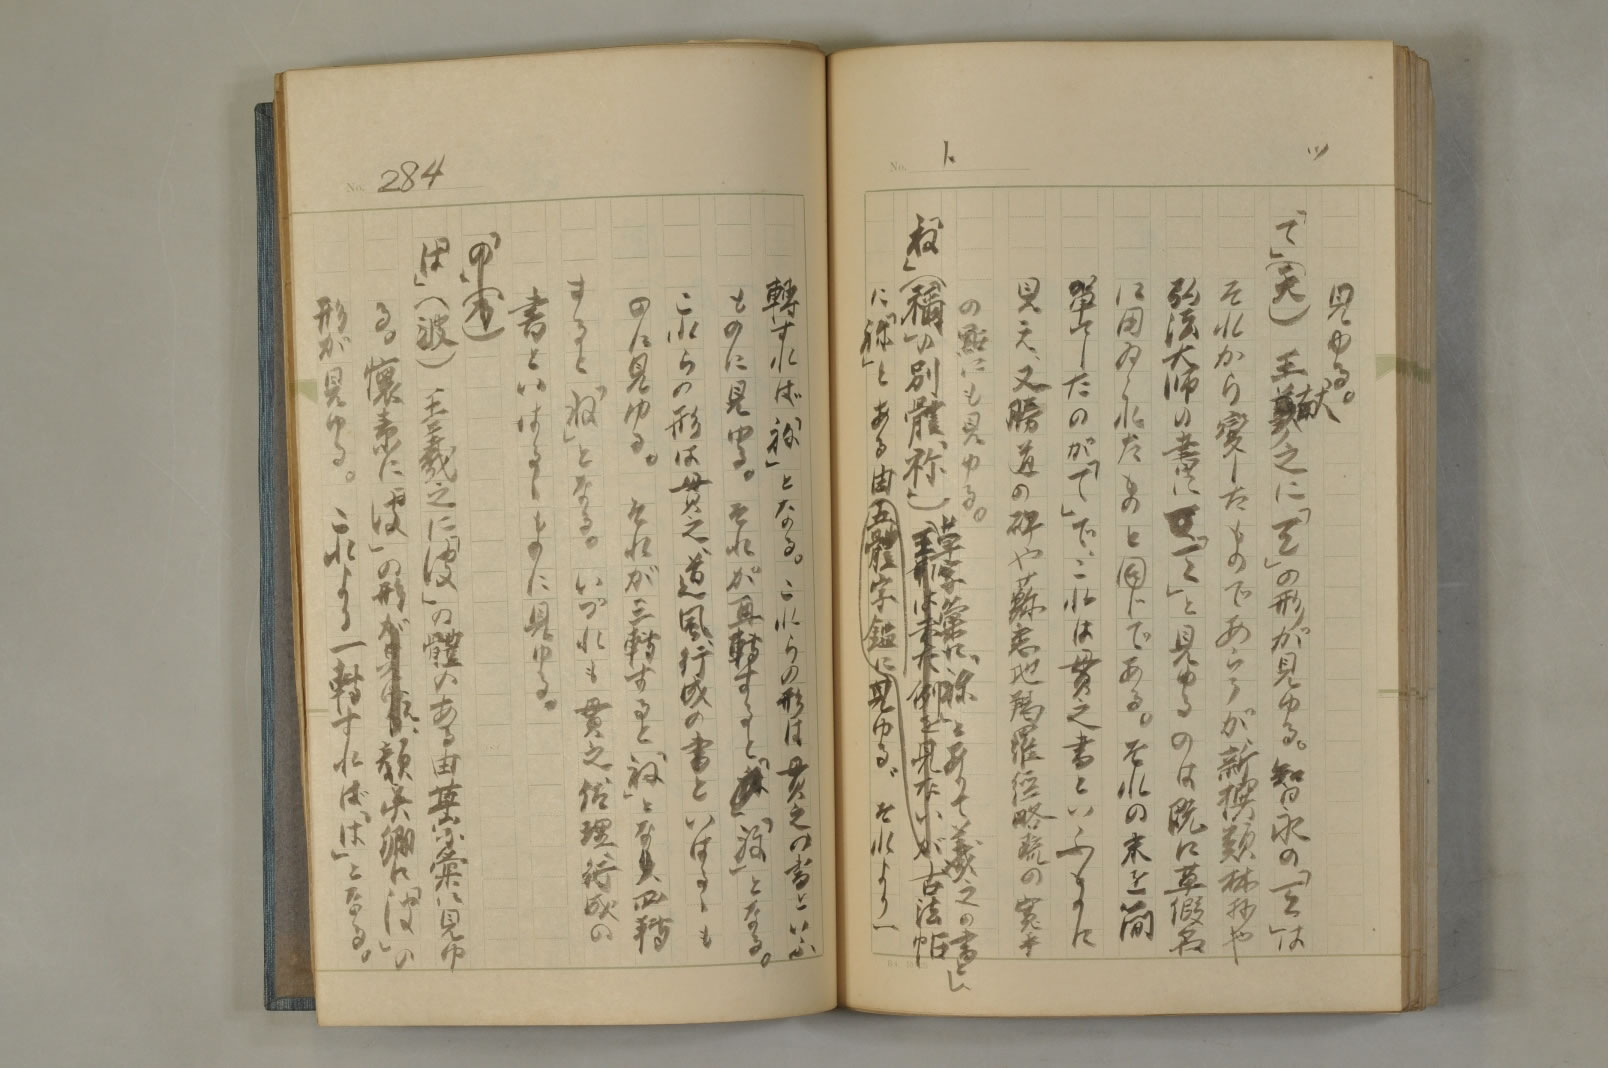 ツ
ト
見ゆる。
「て」(天) 王献之に「て」の形が見ゆる。智永の「て」は
それから変したものであらうが、新撰類林抄や
弘法大師の書に「て」と見ゆるのは既に草假名
に用ゐられたものと同じである。それの末を簡
単にしたのが「て」で、これは貫之書といふものに
見え、又勝道の碑や蘇悉地羯羅経略疏の寛平
の點にも見ゆる。
「ね」(禰の別體、祢) 草字彙に「祢」とありて羲之の書とし
は未だ例を見ないが古法帖
に「祢」とある由五體字鑑に見ゆる。それより一
284
轉すれば「祢」となる。これらの形は貫之の書といふ
ものに見ゆる。それが再轉すると「ね」となる。
これらの形は貫之、道風、行成の書といはるゝも
のに見ゆる。それが三轉すると「ね」となり四轉
すると「ね」となる。いづれも貫之、佐理、行成の
書といはるゝものに見ゆる。
「の」(乃)
「は」(波) 王羲之に「波」の體のある由草字彙に見ゆ
る。懐素に「波」の形が 顔真卿に「波」の
形が見ゆる。これより一轉すれば「は」となる。